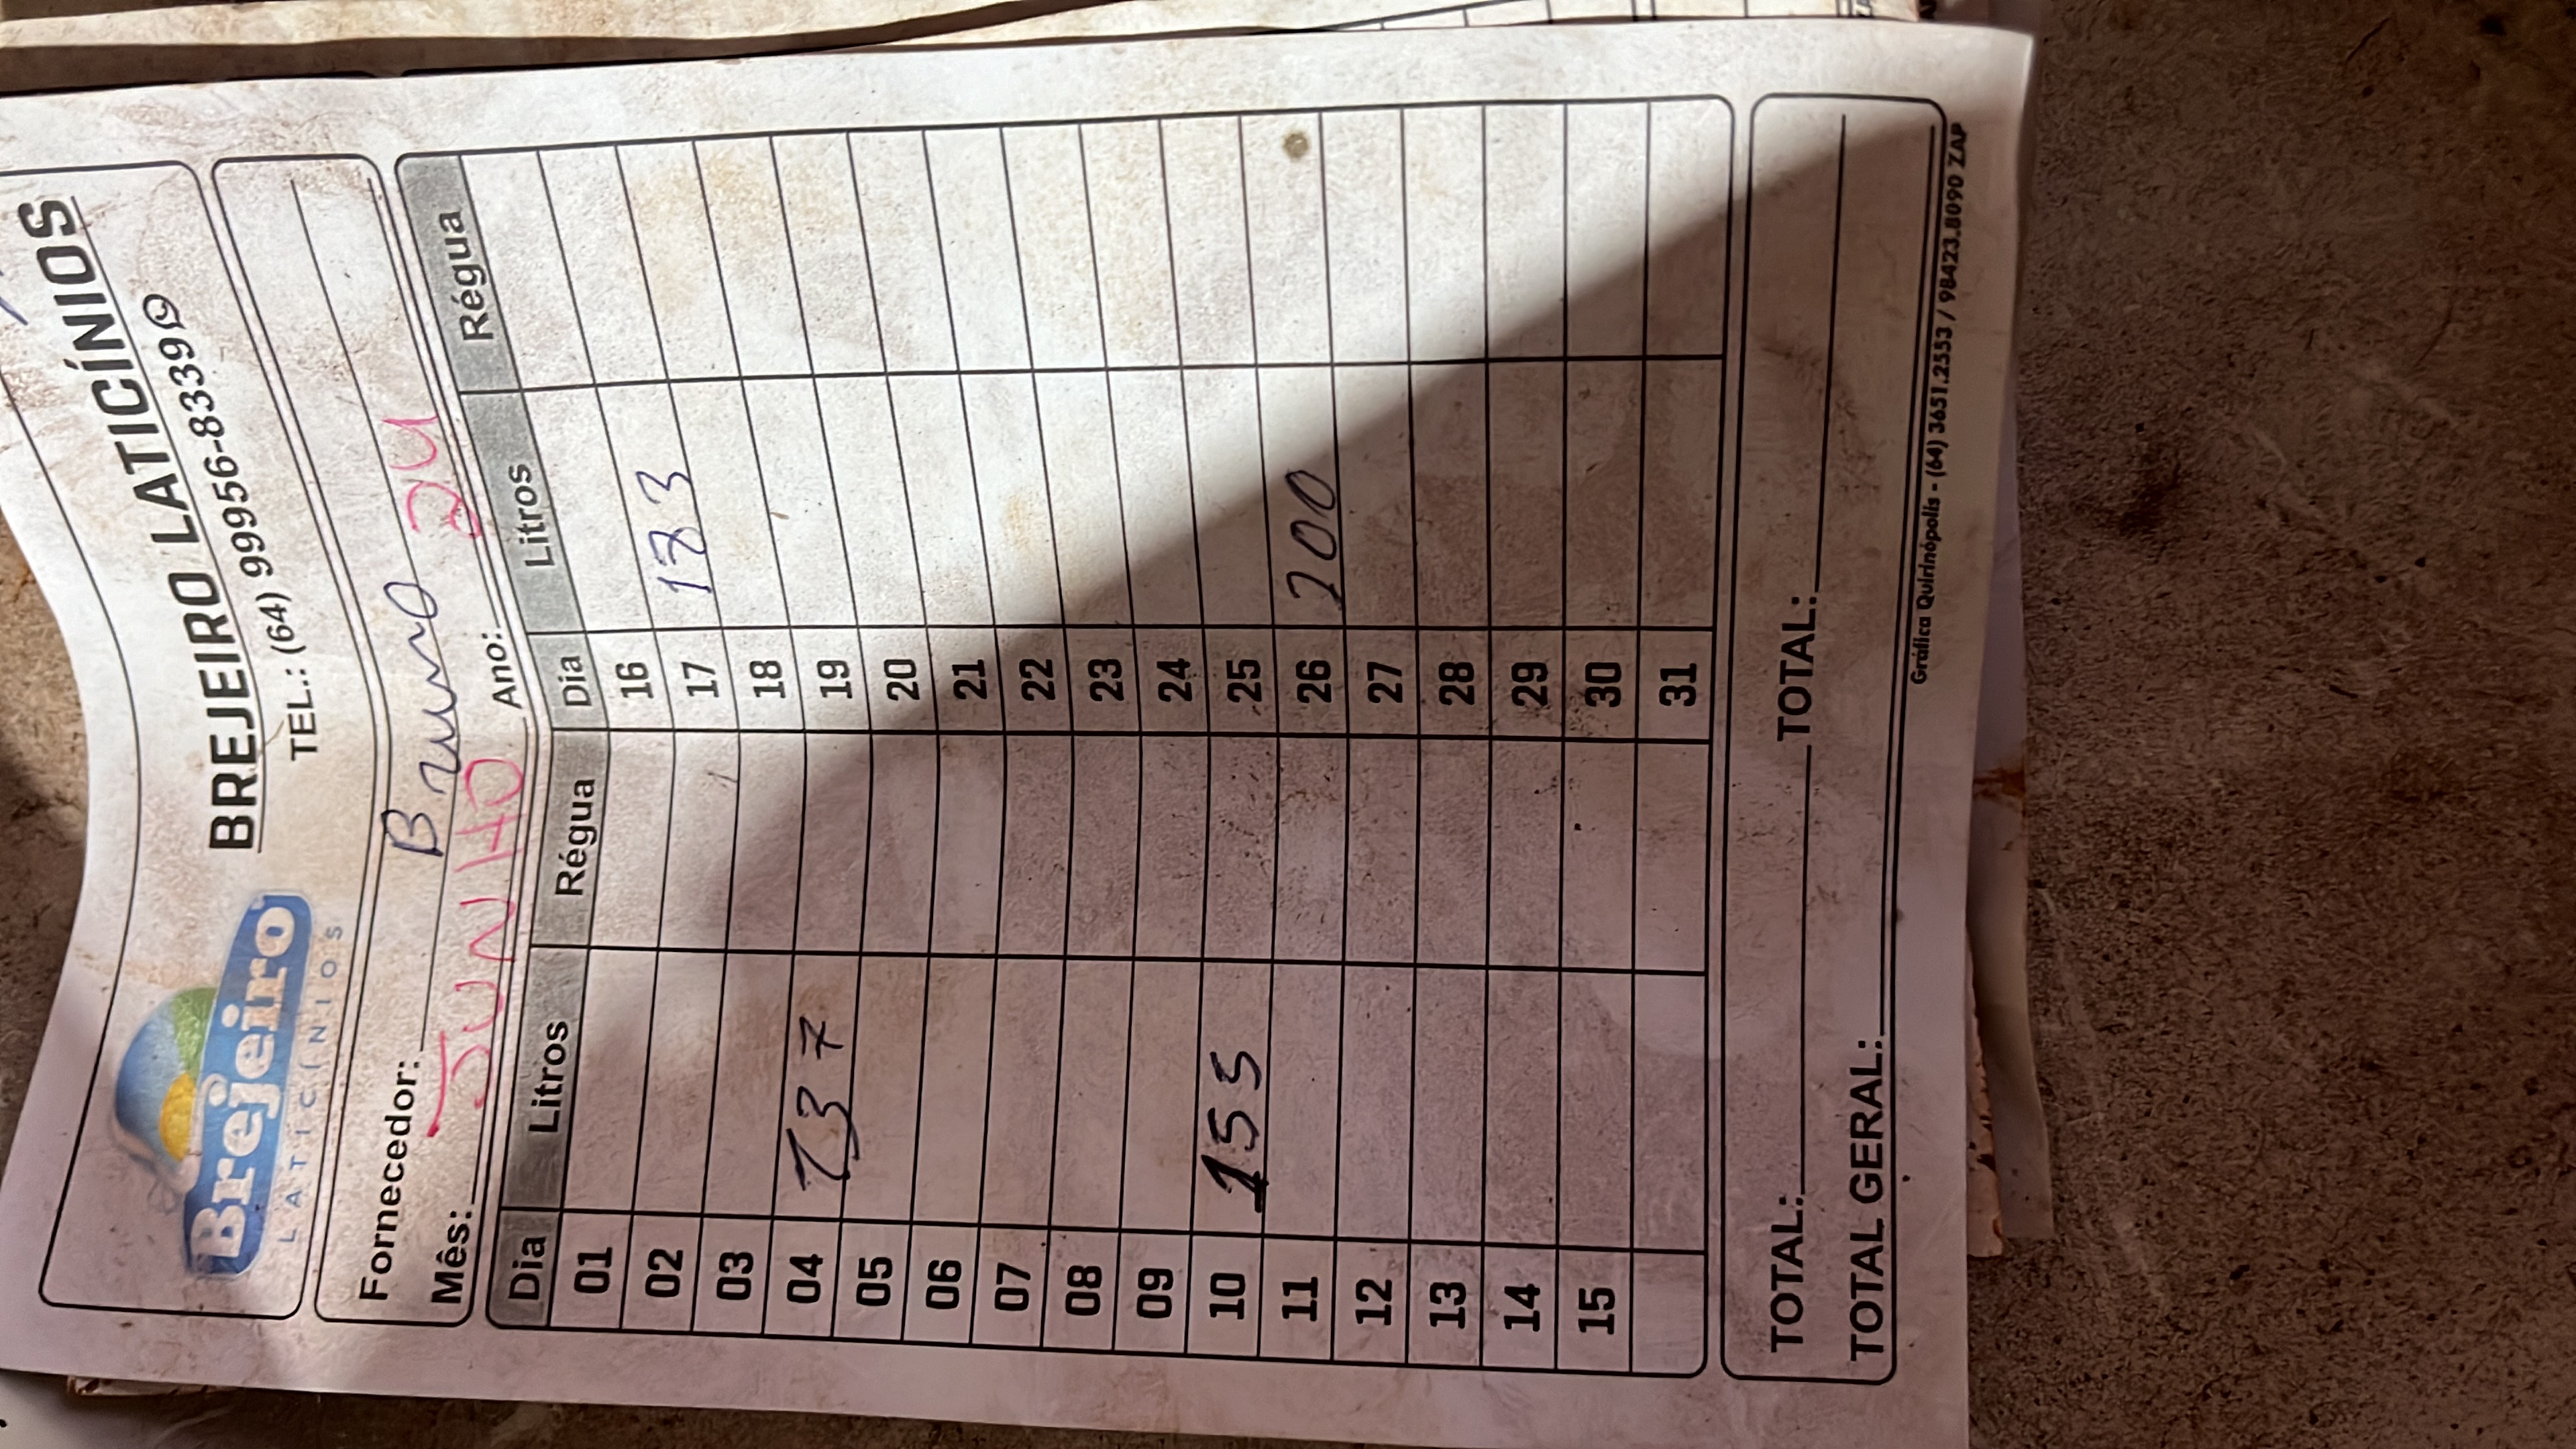 Brejeiro
LATICÍNIOS
BREJEIRO LATICÍNIOS
TEL.: (64) 99956-8339
Fornecedor: Bruno
Mês: JUNHO Ano: 24
Dia Litros Régua Dia Litros Régua
01 16
02 17 183
03 18
04 137 19
05 20
06 21
07 22
08 23
09 24
10 155 25
11 26 200
12 27
13 28
14 29
15 30
31
TOTAL: TOTAL:
TOTAL GERAL:
Gráfica Quirinópolis - (64) 3651.2553 / 98423.8090 ZAP